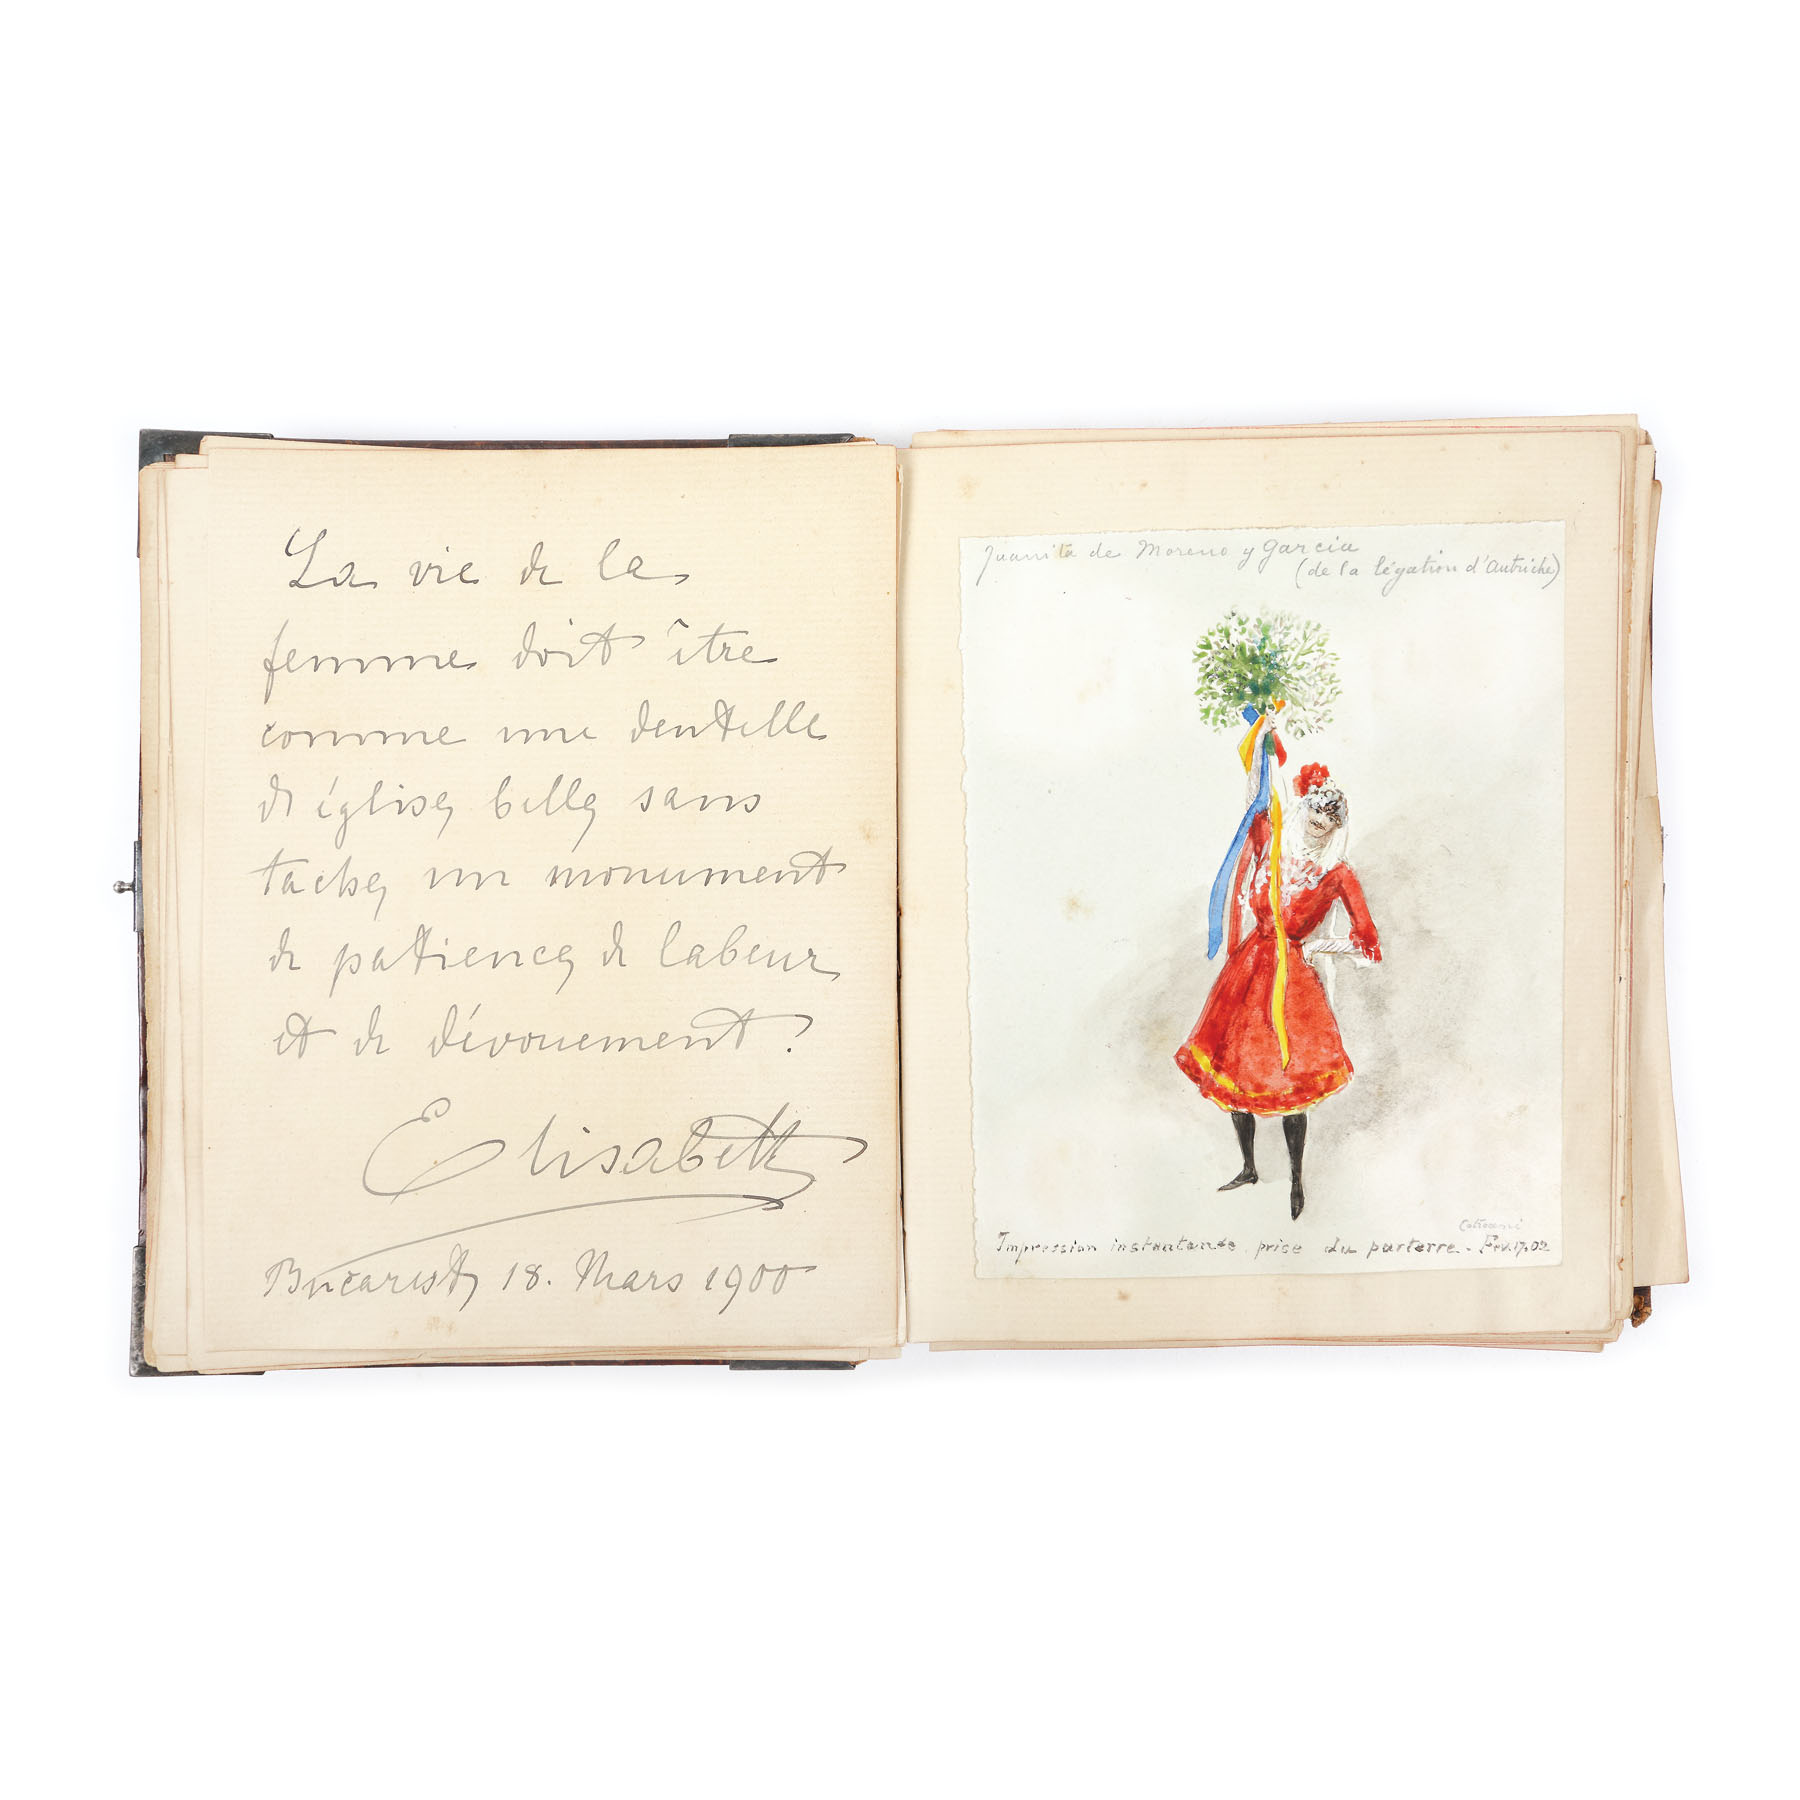 La vie de la
femme doit être
comme une dentelle
de église, belle, sans
tache, un monument
de patience, de labeur
et de dévouement!
Elisabeth
Bucarest, 18. Mars 1900
Juanita de Moreno y Garcia
(de la légation d'Autriche)
Impression instantanée prise du parterre - Fev. 17. 02